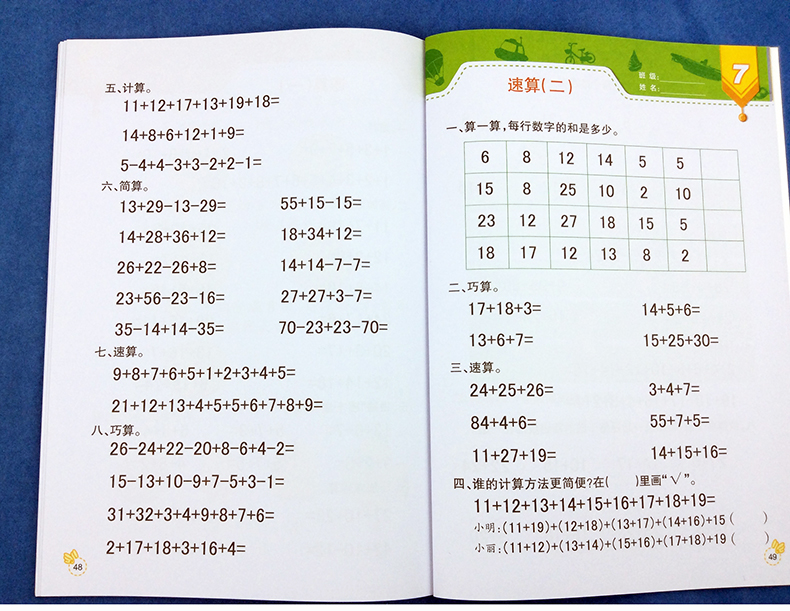 五、计算。
11+12+17+13+19+18=
14+8+6+12+1+9=
5-4+4-3+3-2+2-1=
六、简算。
13+29-13-29= 55+15-15=
14+28+36+12= 18+34+12=
26+22-26+8= 14+14-7-7=
23+56-23-16= 27+27+3-7=
35-14+14-35= 70-23+23-70=
七、速算。
9+8+7+6+5+1+2+3+4+5=
21+12+13+4+5+5+6+7+8+9=
八、巧算。
26-24+22-20+8-6+4-2=
15-13+10-9+7-5+3-1=
31+32+3+4+9+8+7+6=
2+17+18+3+16+4=
48
速算(二)
班级:
姓名:
7
一、算一算,每行数字的和是多少。
6 8 12 14 5 5
15 8 25 10 2 10
23 12 27 18 15 5
18 17 12 13 8 2
二、巧算。
17+18+3= 14+5+6=
13+6+7= 15+25+30=
三、速算。
24+25+26= 3+4+7=
84+4+6= 55+7+5=
11+27+19= 14+15+16=
四、谁的计算方法更简便?在( )里画“√”。
11+12+13+14+15+16+17+18+19=
小明:(11+19)+(12+18)+(13+17)+(14+16)+15 ( )
小丽:(11+12)+(13+14)+(15+16)+(17+18)+19 ( )
49